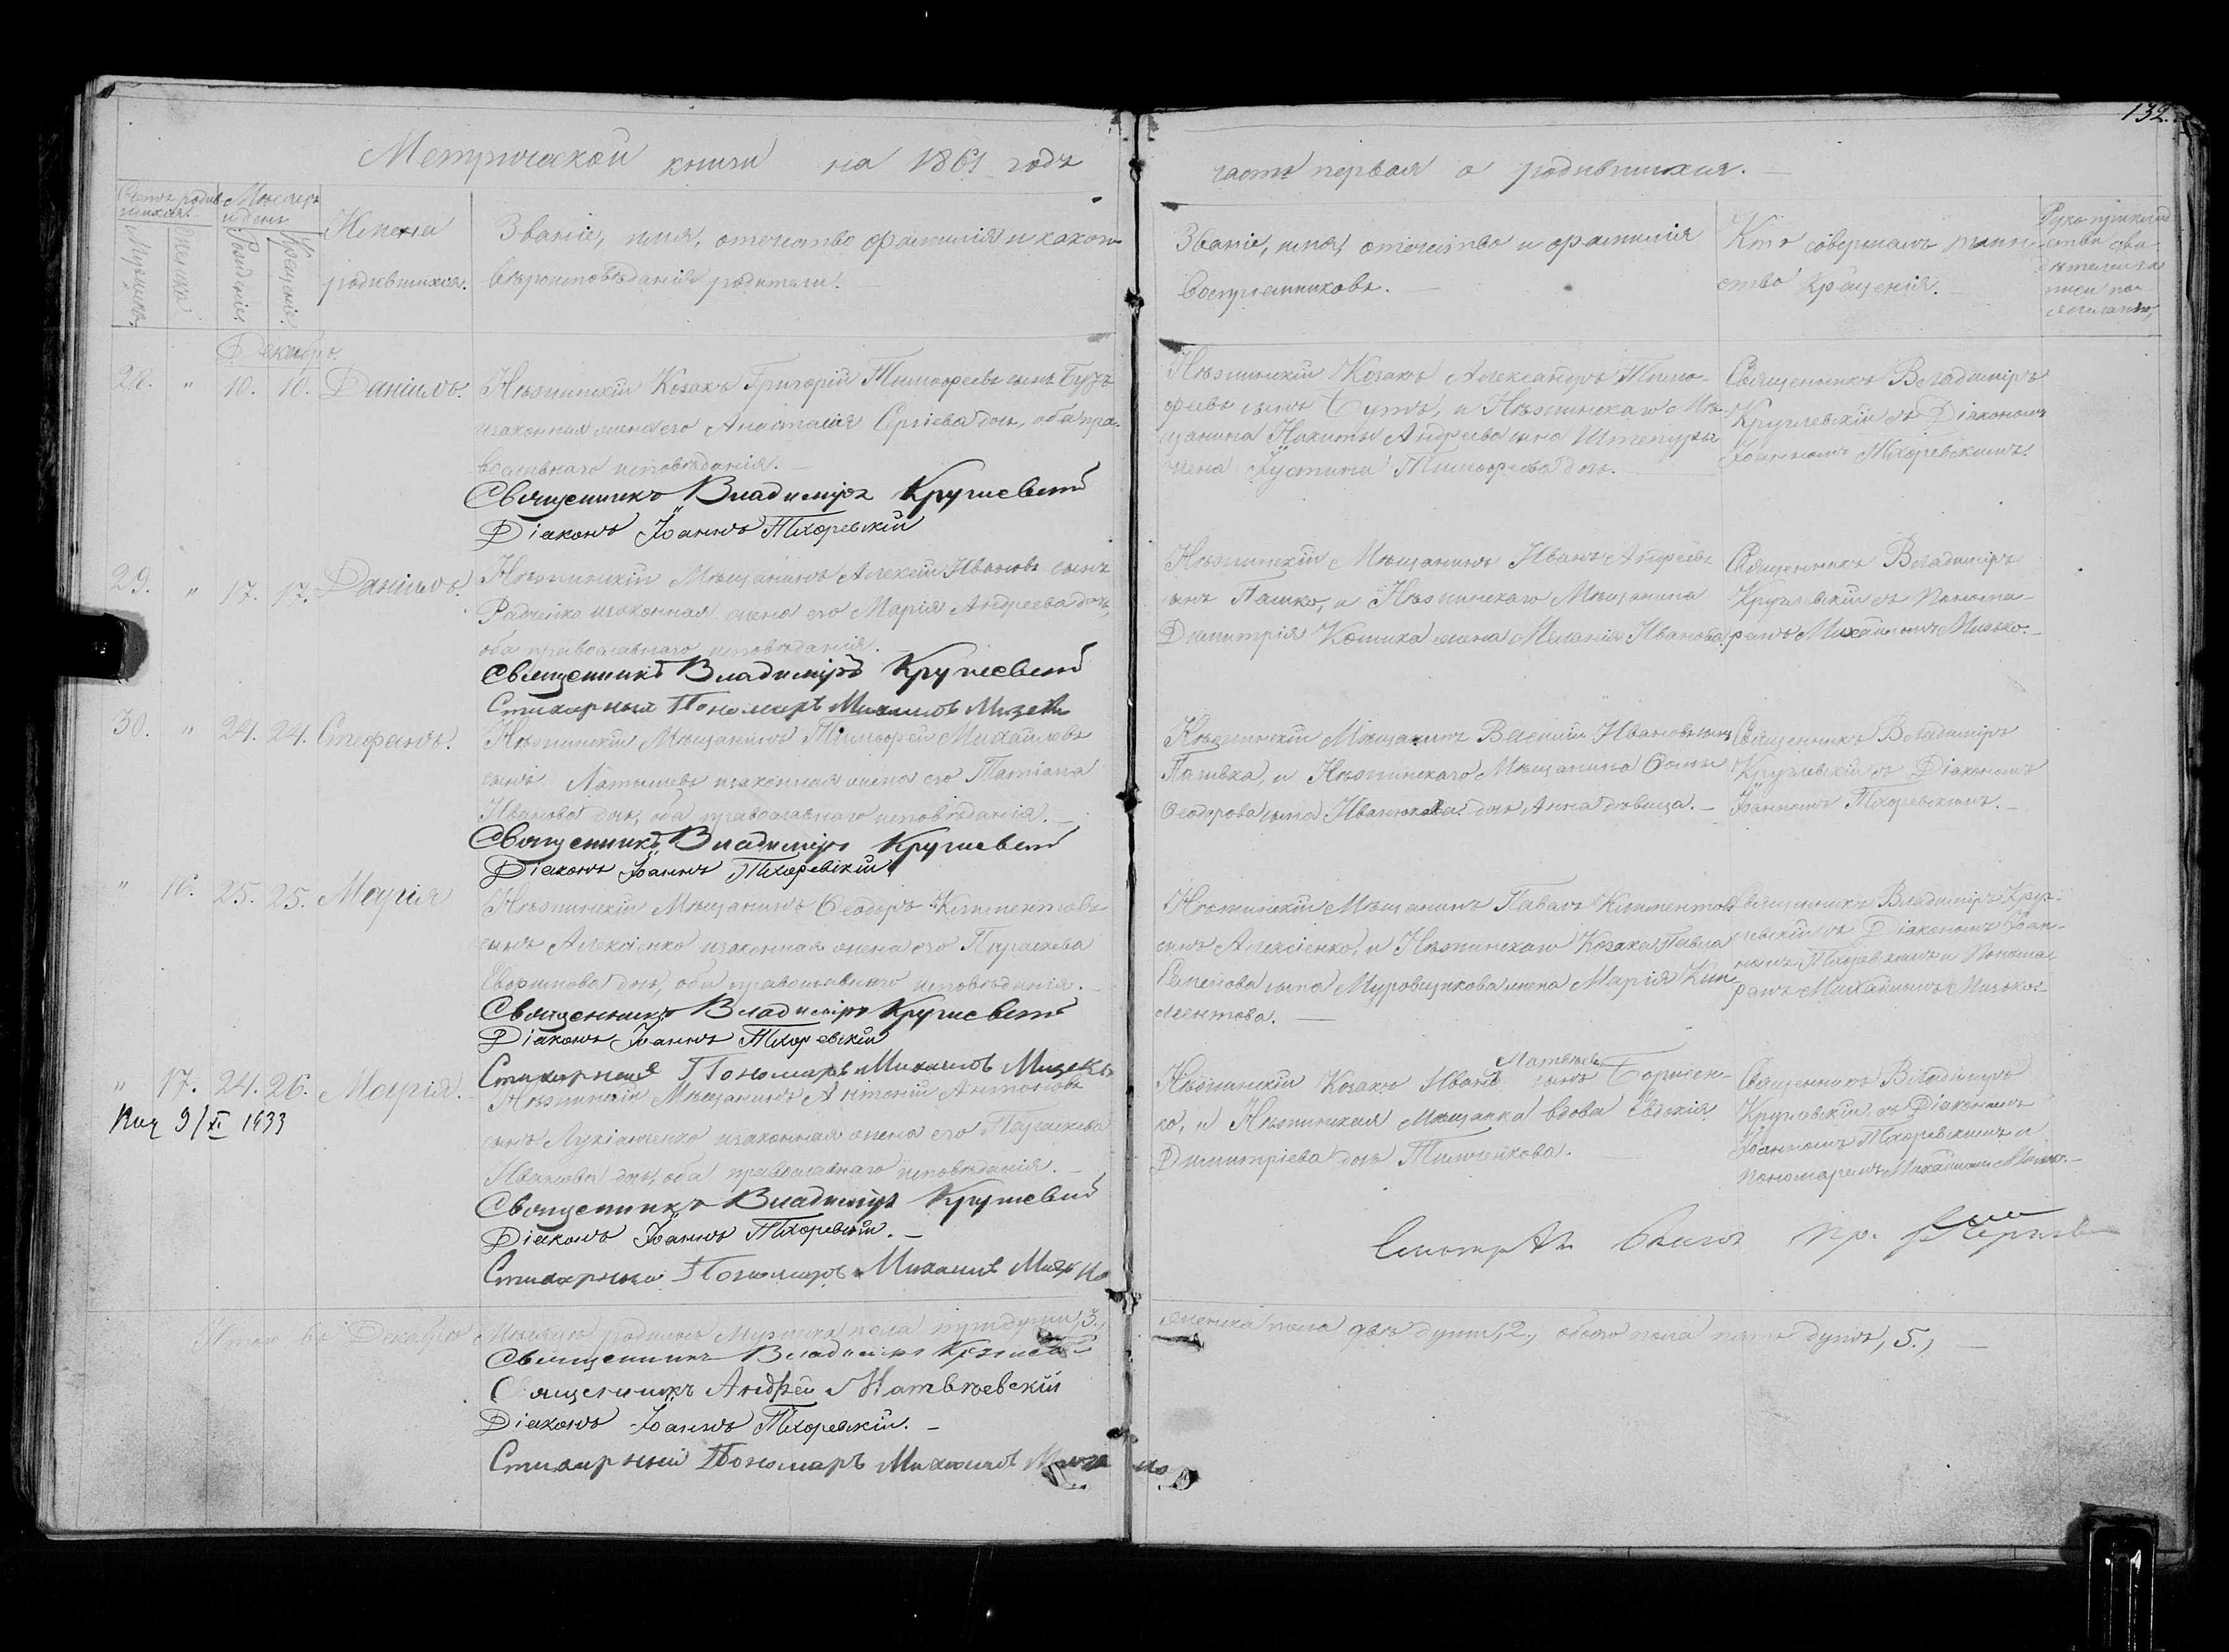 132.
Метрической книги на 1861 годъ
часть первая о родившихся.
Счетъ родив-
шихся.
Мужеска.
Женска.
Мѣсяцъ
и день
Рожденія.
Крещенія.
Имена
родившихся.
Званіе, имя, отечество фамилія и какого
вѣроисповѣданія родители.
Званіе, имя, отечество и фамилія
воспріемниковъ.
Кто совершалъ таин-
ство Крещенія.
Декабрь.
28. " 10. 10. Даніилъ.
Нѣжинскій Козакъ Григорій Тимофеевъ сынъ
изаконная жена его Анастасія Сергіева дочь, оба пра-
вославнаго исповѣданія.
Священникъ Владиміръ Круглевскій
Діаконъ Іоаннъ Тихоревскій
Нѣжинскій Козакъ Александръ Тимо-
феевъ сынъ и Нѣжинскаго Мѣ-
щанина Никиты Андреева сына Штепуры
жена Іустина Тимофеева дочь.
Священникъ Владиміръ
Круглевскій съ Діакономъ
Іоанномъ Тихоревскимъ.
29. " 17. 17. Даніилъ.
Нѣжинскій Мѣщанинъ Алексій Ивановъ сынъ
Радченко изаконная жена его Марія Андреева дочь,
оба православнаго исповѣданія.
Священникъ Владиміръ Круглевскій
Стихарный Пономарь Михаилъ
Нѣжинскій Мѣщанинъ Иванъ Андреевъ
сынъ Пашко, и Нѣжинскаго Мѣщанина
Димитрія Кошика жена Меланія Иванова.
Священникъ Владиміръ
Круглевскій съ Понома-
ремъ Михаиломъ
30. " 24. 24. Стефанъ.
Нѣжинскій Мѣщанинъ Тимофей Михайловъ
сынъ Латышевъ изаконная жена его Татіана
Иванова дочь, оба православнаго исповѣданія.
Священникъ Владиміръ Круглевскій
Діаконъ Іоаннъ Тихоревскій
Нѣжинскій Мѣщанинъ Василій Ивановъ сынъ
и Нѣжинскаго Мѣщанина Фомы
Феодорова сына Иванюкова дочь Анна дѣвица.
Священникъ Владиміръ
Круглевскій съ Діакономъ
Іоанномъ Тихоревскимъ.
" 16. 25. 25. Марія
Нѣжинскій Мѣщанинъ Феодоръ Климентовъ
сынъ Алексіенко изаконная жена его Параскева
Евфимова дочь, оба православнаго исповѣданія.
Священникъ Владиміръ Круглевскій
Діаконъ Іоаннъ Тихоревскій
Стихарный Пономарь Михаилъ
Нѣжинскій Мѣщанинъ Павелъ Климентовъ
сынъ Алексіенко, и Нѣжинскаго Козака Павла
сына жена Марія Кли-
ментова.
Священникъ Владиміръ Круг-
левскій съ Діакономъ Іоан-
номъ Тихоревскимъ и Понома-
ремъ Михаиломъ
" 17. 24. 26. Марія.
9/XI 1933
Нѣжинскій Мѣщанинъ Антоній Антоновъ
сынъ Лукіаненко изаконная жена его Параскева
Иванова дочь, оба православнаго исповѣданія.
Священникъ Владиміръ Круглевскій
Діаконъ Іоаннъ Тихоревскій.
Стихарный Пономарь Михаилъ
Матвѣевъ
Нѣжинскій Козакъ Иванъ сынъ Борисен-
ко, и Нѣжинская Мѣщанка вдова Евдокія
Димитріева дочь Тимченкова.
Священникъ Владиміръ
Круглевскій съ Діакономъ
Іоанномъ Тихоревскимъ и
Пономаремъ Михаиломъ
Итого въ Декабрѣ Мѣсяцѣ родилось Мужеска пола три души, 3.,
женска пола двѣ души, 2., обоего пола пять душъ, 5.,
Священникъ Владиміръ Круглевскій
Священникъ Андрей Матвѣевскій
Діаконъ Іоаннъ Тихоревскій.
Стихарный Пономарь Михаилъ